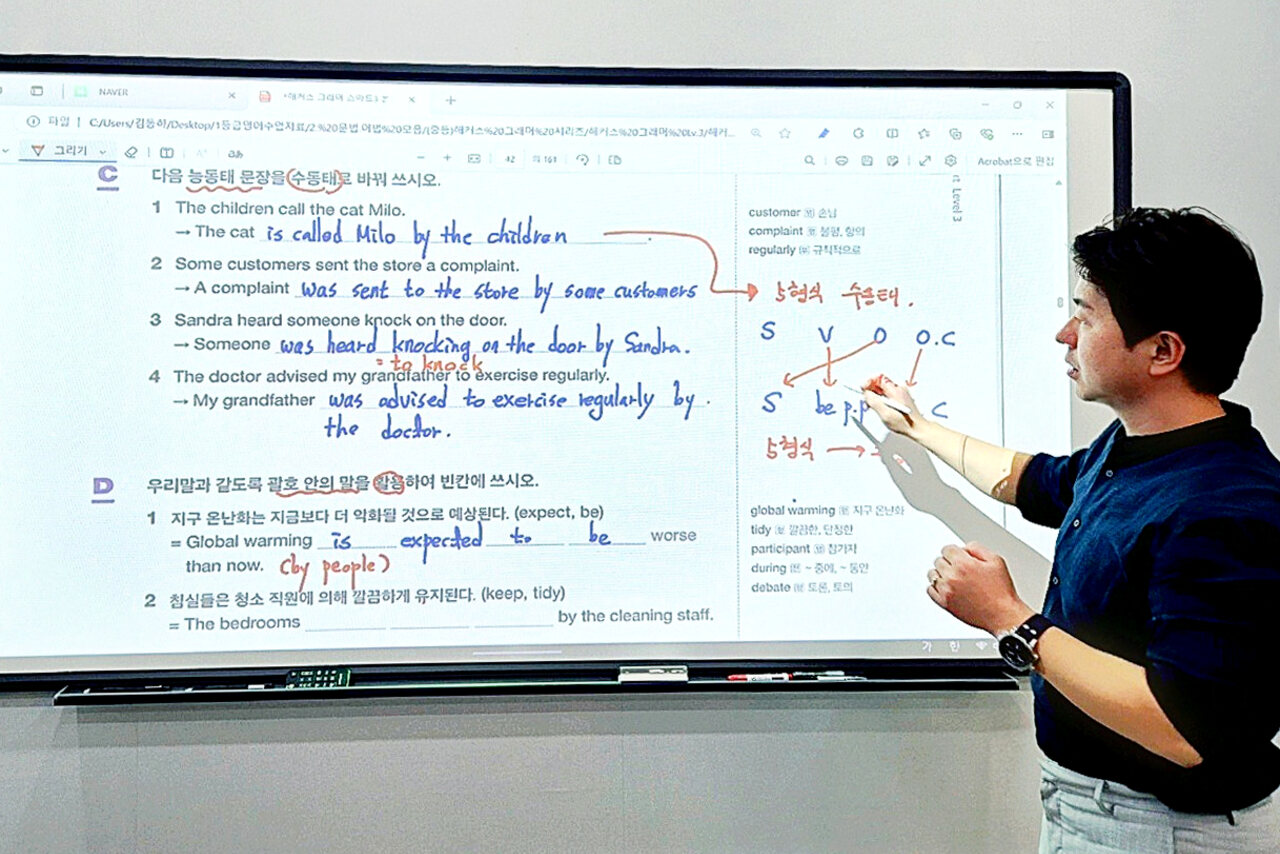 NAVER
*해커스 그래머 스마트3 본
파일 C:/Users/김동하/Desktop/1등급영어수업자료/2.%20문법 어법%20모음/(중등)해커스%20그래머%20시리즈/해커스%20그래머%20Lv.3/해커...
그리기 aあ 42 의 161 Acrobat으로 편집
C 다음 능동태 문장을 수동태로 바꿔 쓰시오.
1 The children call the cat Milo.
→ The cat is called Milo by the children.
2 Some customers sent the store a complaint.
→ A complaint was sent to the store by some customers
3 Sandra heard someone knock on the door.
→ Someone was heard knocking on the door by Sandra.
= to knock
4 The doctor advised my grandfather to exercise regularly.
→ My grandfather was advised to exercise regularly by.
the doctor.
D 우리말과 같도록 괄호 안의 말을 활용하여 빈칸에 쓰시오.
1 지구 온난화는 지금보다 더 악화될 것으로 예상된다. (expect, be)
= Global warming is expected to be worse
than now. (by people)
2 침실들은 청소 직원에 의해 깔끔하게 유지된다. (keep, tidy)
= The bedrooms by the cleaning staff.
Level 3
customer 명 손님
complaint 명 불평, 항의
regularly 부 규칙적으로
5형식 수동태.
S V O O.C
S be p.p C
5형식 →
global warming 명 지구 온난화
tidy 형 깔끔한, 단정한
participant 명 참가자
during 전 ~ 중에, ~ 동안
debate 명 토론, 토의
가 한